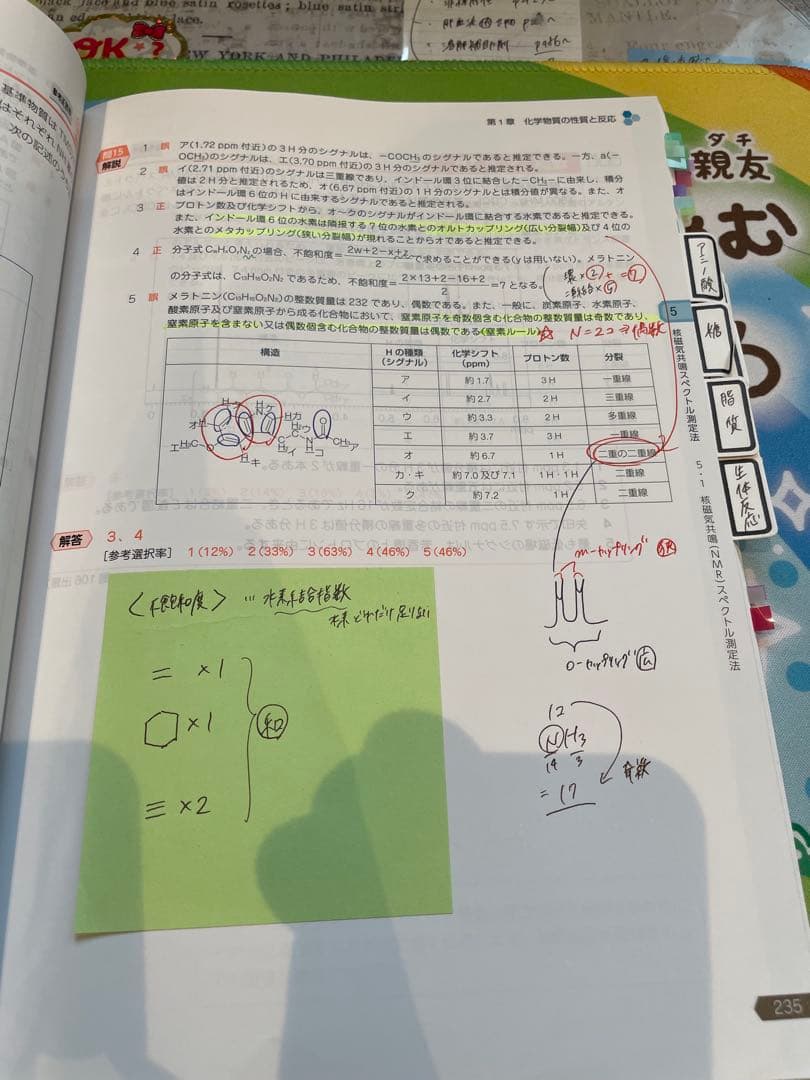 black jace and blue satin rosettes; blue satin stri
OK★?
NEW YORK AND PHILADE
MANTLE.
基準物質は
はそれぞれ
次の記述の
第1章 化学物質の性質と反応
問15
解説
1 誤 ア(1.72 ppm 付近)の3H分のシグナルは、−COCH₃のシグナルであると推定できる。一方、a(−
OCH₃)のシグナルは、エ(3.70 ppm 付近)の3H分のシグナルであると推定される。
2 誤 イ(2.71 ppm 付近)のシグナルは三重線であり、インドール環3位に結合した−CH₂−に由来し、積分
値は2H分と推定されるため、オ(6.67 ppm 付近)の1H分のシグナルとは積分値が異なる。また、オ
はインドール環6位のHに由来するシグナルであると推定される。
3 正 プロトン数及び化学シフトから、オ〜クのシグナルがインドール環に結合する水素であると推定できる。
また、インドール環6位の水素は隣接する7位の水素とのオルトカップリング(広い分裂幅)及び4位の
水素とのメタカップリング(狭い分裂幅)が現れることからオであると推定できる。
4 正 分子式CwHxOyNzの場合、不飽和度=2w+2−x+z/2で求めることができる(yは用いない)。メラトニン
の分子式は、C₁₃H₁₆O₂N₂であるため、不飽和度=2×13+2−16+2/2=7となる。
環×② + =⑦
二重結合×⑤
5 誤 メラトニン(C₁₃H₁₆O₂N₂)の整数質量は232であり、偶数である。また、一般に、炭素原子、水素原子、
酸素原子及び窒素原子から成る化合物において、窒素原子を奇数個含む化合物の整数質量は奇数であり、
窒素原子を含まない又は偶数個含む化合物の整数質量は偶数である(窒素ルール)。
☆ N=2コ⇒偶数
構造 Hの種類(シグナル) 化学シフト(ppm) プロトン数 分裂
ア 約1.7 3H 一重線
イ 約2.7 2H 三重線
ウ 約3.3 2H 多重線
エ 約3.7 3H 一重線
オ 約6.7 1H 二重の二重線
カ・キ 約7.0及び7.1 1H・1H 二重線
ク 約7.2 1H 二重線
解答 3、4
[参考選択率] 1(12%) 2(33%) 3(63%) 4(46%) 5(46%)
〈不飽和度〉 … 水素結合指数
= ×1
×1
≡ ×2
和
m-カップリング 狭
o-カップリング 広
12
NH₃
14 3
= 17
奇数
5
核磁気共鳴スペクトル測定法
5・1 核磁気共鳴(NMR)スペクトル測定法
アミノ酸
糖
脂質
生体反応
ダチ
親友
む
235